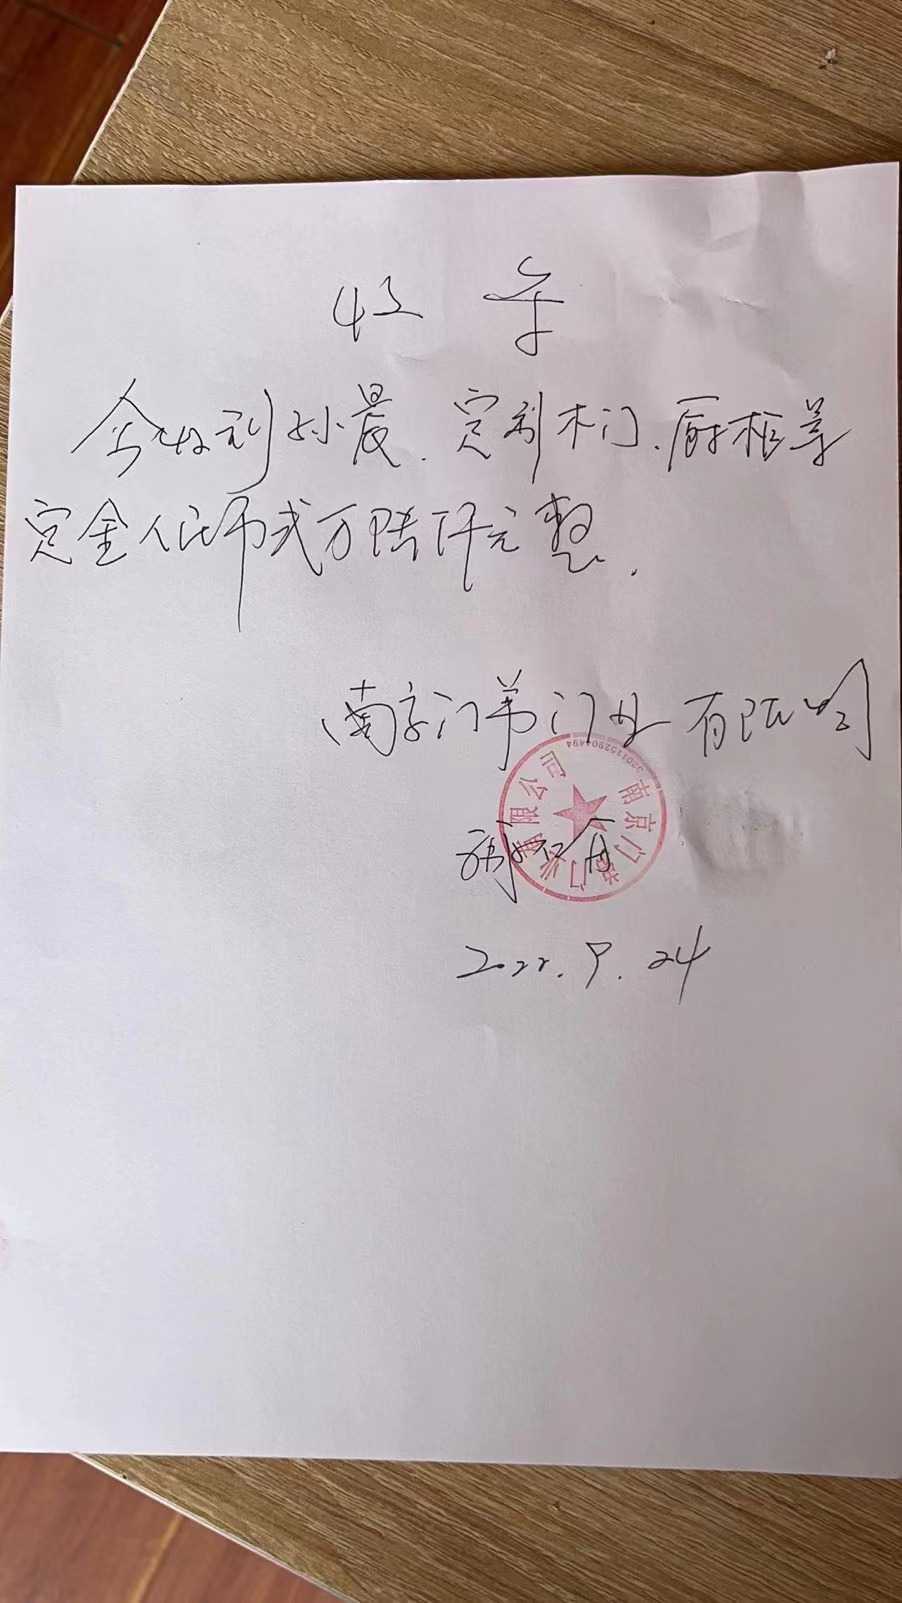 收条
今收到孙晨.定制木门.厨柜等
定金人民币弍万陆仟元整.
南京门弟门业有限公司
南京门弟门业有限公司
2022.9.24